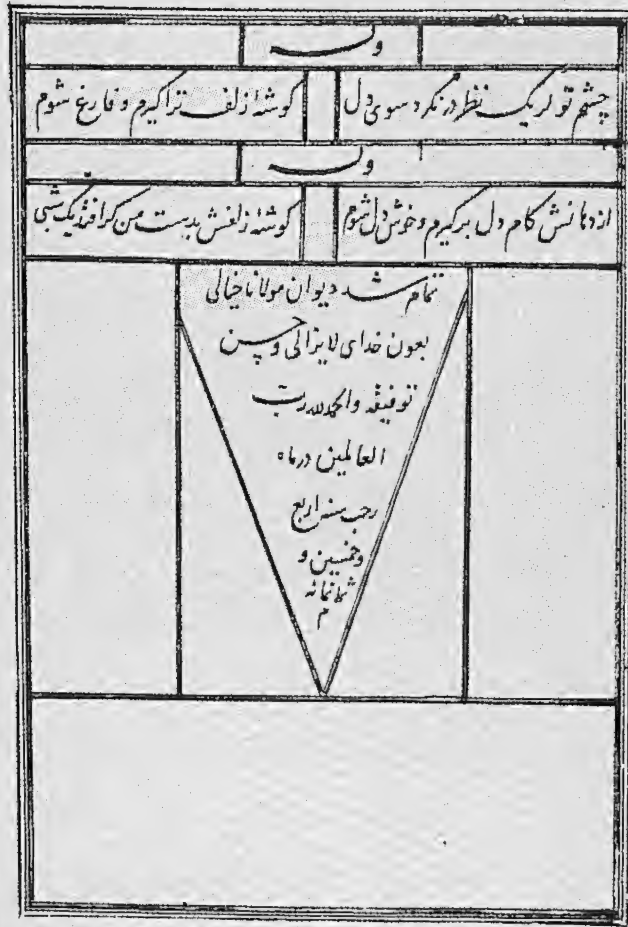 وله
چشم تو گر یک نظر در نگرد سوی دل گوشهٔ زلف ترا گیرم و فارغ شوم
وله
از دهانش کام دل برگیرم و خوش دل شوم گوشهٔ زلفش بدست من گر افتد یک شبی
تمام شد دیوان مولانا خیالی
بعون خدای لایزالی و حسن
توفیقه والحمدلله رب
العالمین در ماه
رجب سنه اربع
وخمسین و
ثمانمائه
م